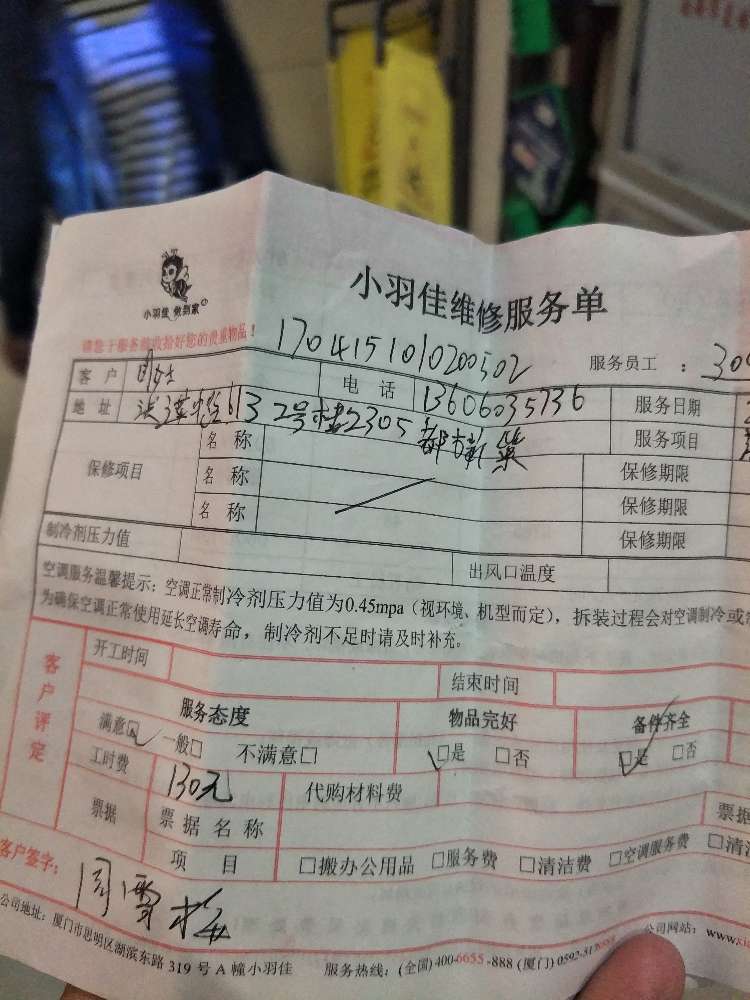 小羽佳 做到家
小羽佳维修服务单
请您于服务前收拾好您的贵重物品！
1704151010200502
服务员工：300
客户
电话 13606035736
服务日期
地址 613 2号楼2305 都市新筑
服务项目
保修项目
名称 保修期限
名称 保修期限
名称 保修期限
制冷剂压力值 出风口温度
空调服务温馨提示：空调正常制冷剂压力值为0.45mpa（视环境、机型而定），拆装过程会对空调制冷或
为确保空调正常使用延长空调寿命，制冷剂不足时请及时补充。
客户评定
开工时间 结束时间
服务态度 物品完好 备件齐全
满意□ 一般□ 不满意□ □是 □否 □是 □否
工时费 130元 代购材料费
票据 票据名称 票据
项目 □搬办公用品 □服务费 □清洁费 □空调服务费 □清洁
客户签字：周雪梅
公司地址：厦门市思明区湖滨东路 319 号 A 幢小羽佳 服务热线：(全国)400-6655-888 (厦门)0592-51 公司网站：www.xi